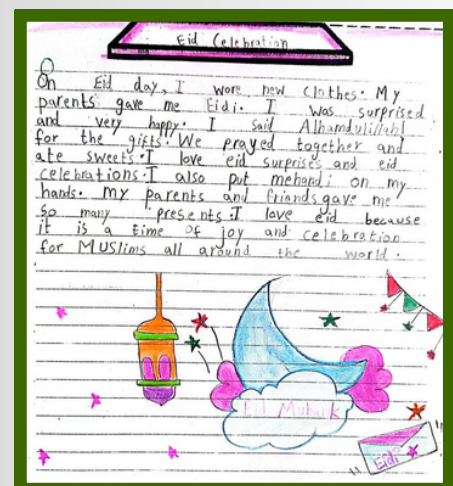 Eid Celebration
On Eid day, I wore new clothes. My
parents gave me Eidi. I was surprised
and very happy. I said Alhamdulillah!
for the gifts. We prayed together and
ate sweets. I love eid surprises and eid
celebrations. I also put mehandi on my
hands. my parents and friends gave me
so many presents. I love eid because
it is a time of joy and celebration
for MUSlims all around the world.
Eid Mubarak
Eidi